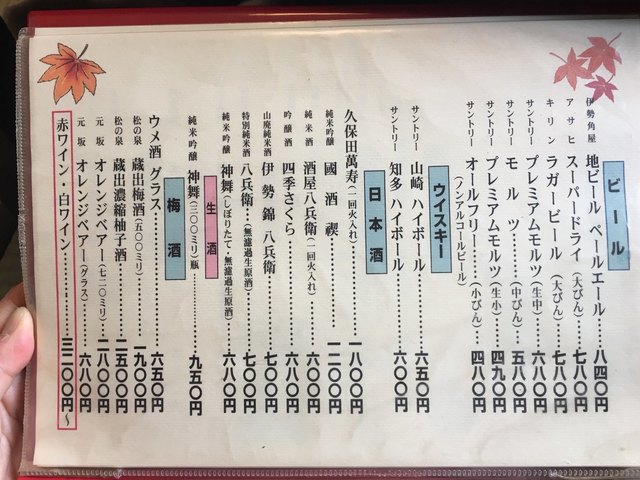 ビール
伊勢角屋 地ビール ペールエール……八四〇円
アサヒ スーパードライ（大びん）……七八〇円
キリン ラガービール（大びん）……七八〇円
サントリー プレミアムモルツ（生中）……六八〇円
サントリー モルツ……（中びん）……五八〇円
サントリー プレミアムモルツ（生小）……四九〇円
サントリー オールフリー……（小びん）……四八〇円
（ノンアルコールビール）
ウイスキー
サントリー 山崎 ハイボール……六五〇円
サントリー 知多 ハイボール……六〇〇円
日本酒
久保田萬寿（二回火入れ）……一八〇〇円
純米吟醸 國酒禊……一二〇〇円
純米酒 酒屋八兵衛（二回火入れ）……六八〇円
吟醸酒 四季さくら……六八〇円
山廃純米酒 伊勢錦 八兵衛……七〇〇円
特別純米酒 八兵衛……（無濾過生原酒）……七〇〇円
純米吟醸 神舞（しぼりたて・無濾過生原酒）……六八〇円
生酒
純米吟醸 神舞（三〇〇ミリ）瓶……九五〇円
梅酒
ウメ酒 グラス……六五〇円
松の泉 蔵出梅酒（五〇〇ミリ）……一九〇〇円
松の泉 蔵出濃縮柚子酒……二五〇〇円
元坂 オレンジベアー（七二〇ミリ）……二八〇〇円
元坂 オレンジベアー（グラス）……六八〇円
赤ワイン・白ワイン……三二〇〇円～